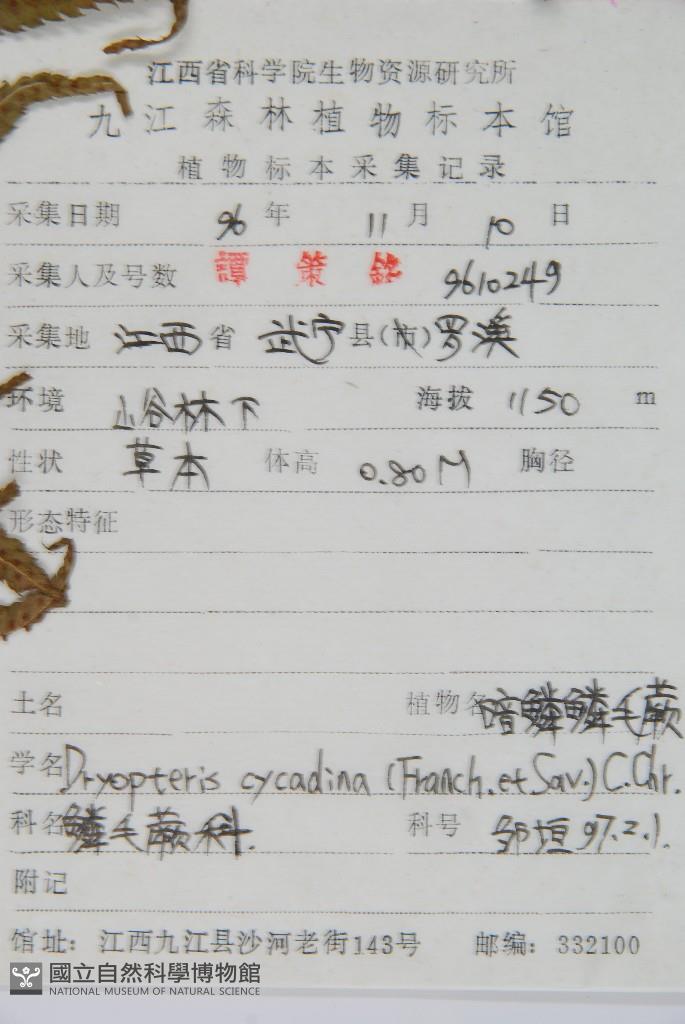 江西省科学院生物资源研究所
九江森林植物标本馆
植物标本采集记录
采集日期 96 年 11 月 10 日
采集人及号数 譚策銘 9610249
采集地 江西省 武宁县(市)罗溪
环境 山谷林下 海拔 1150 m
性状 草本 体高 0.80M 胸径
形态特征
土名 植物名 暗鳞鳞毛蕨
学名 Dryopteris cycadina (Franch. et Sav.) C.Chr.
科名 鳞毛蕨科. 科号 邹垣 97.2.1.
附记
馆址：江西九江县沙河老街143号 邮编：332100
國立自然科學博物館
NATIONAL MUSEUM OF NATURAL SCIENCE